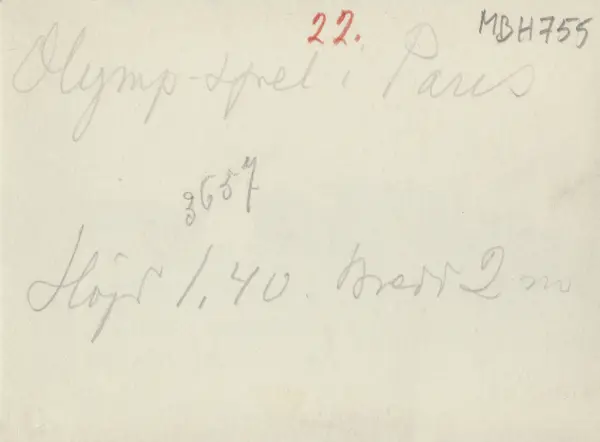 22.
MBH755
Olymp-spel i Paris
3657
Höjd 1,40. Bredd 2 m